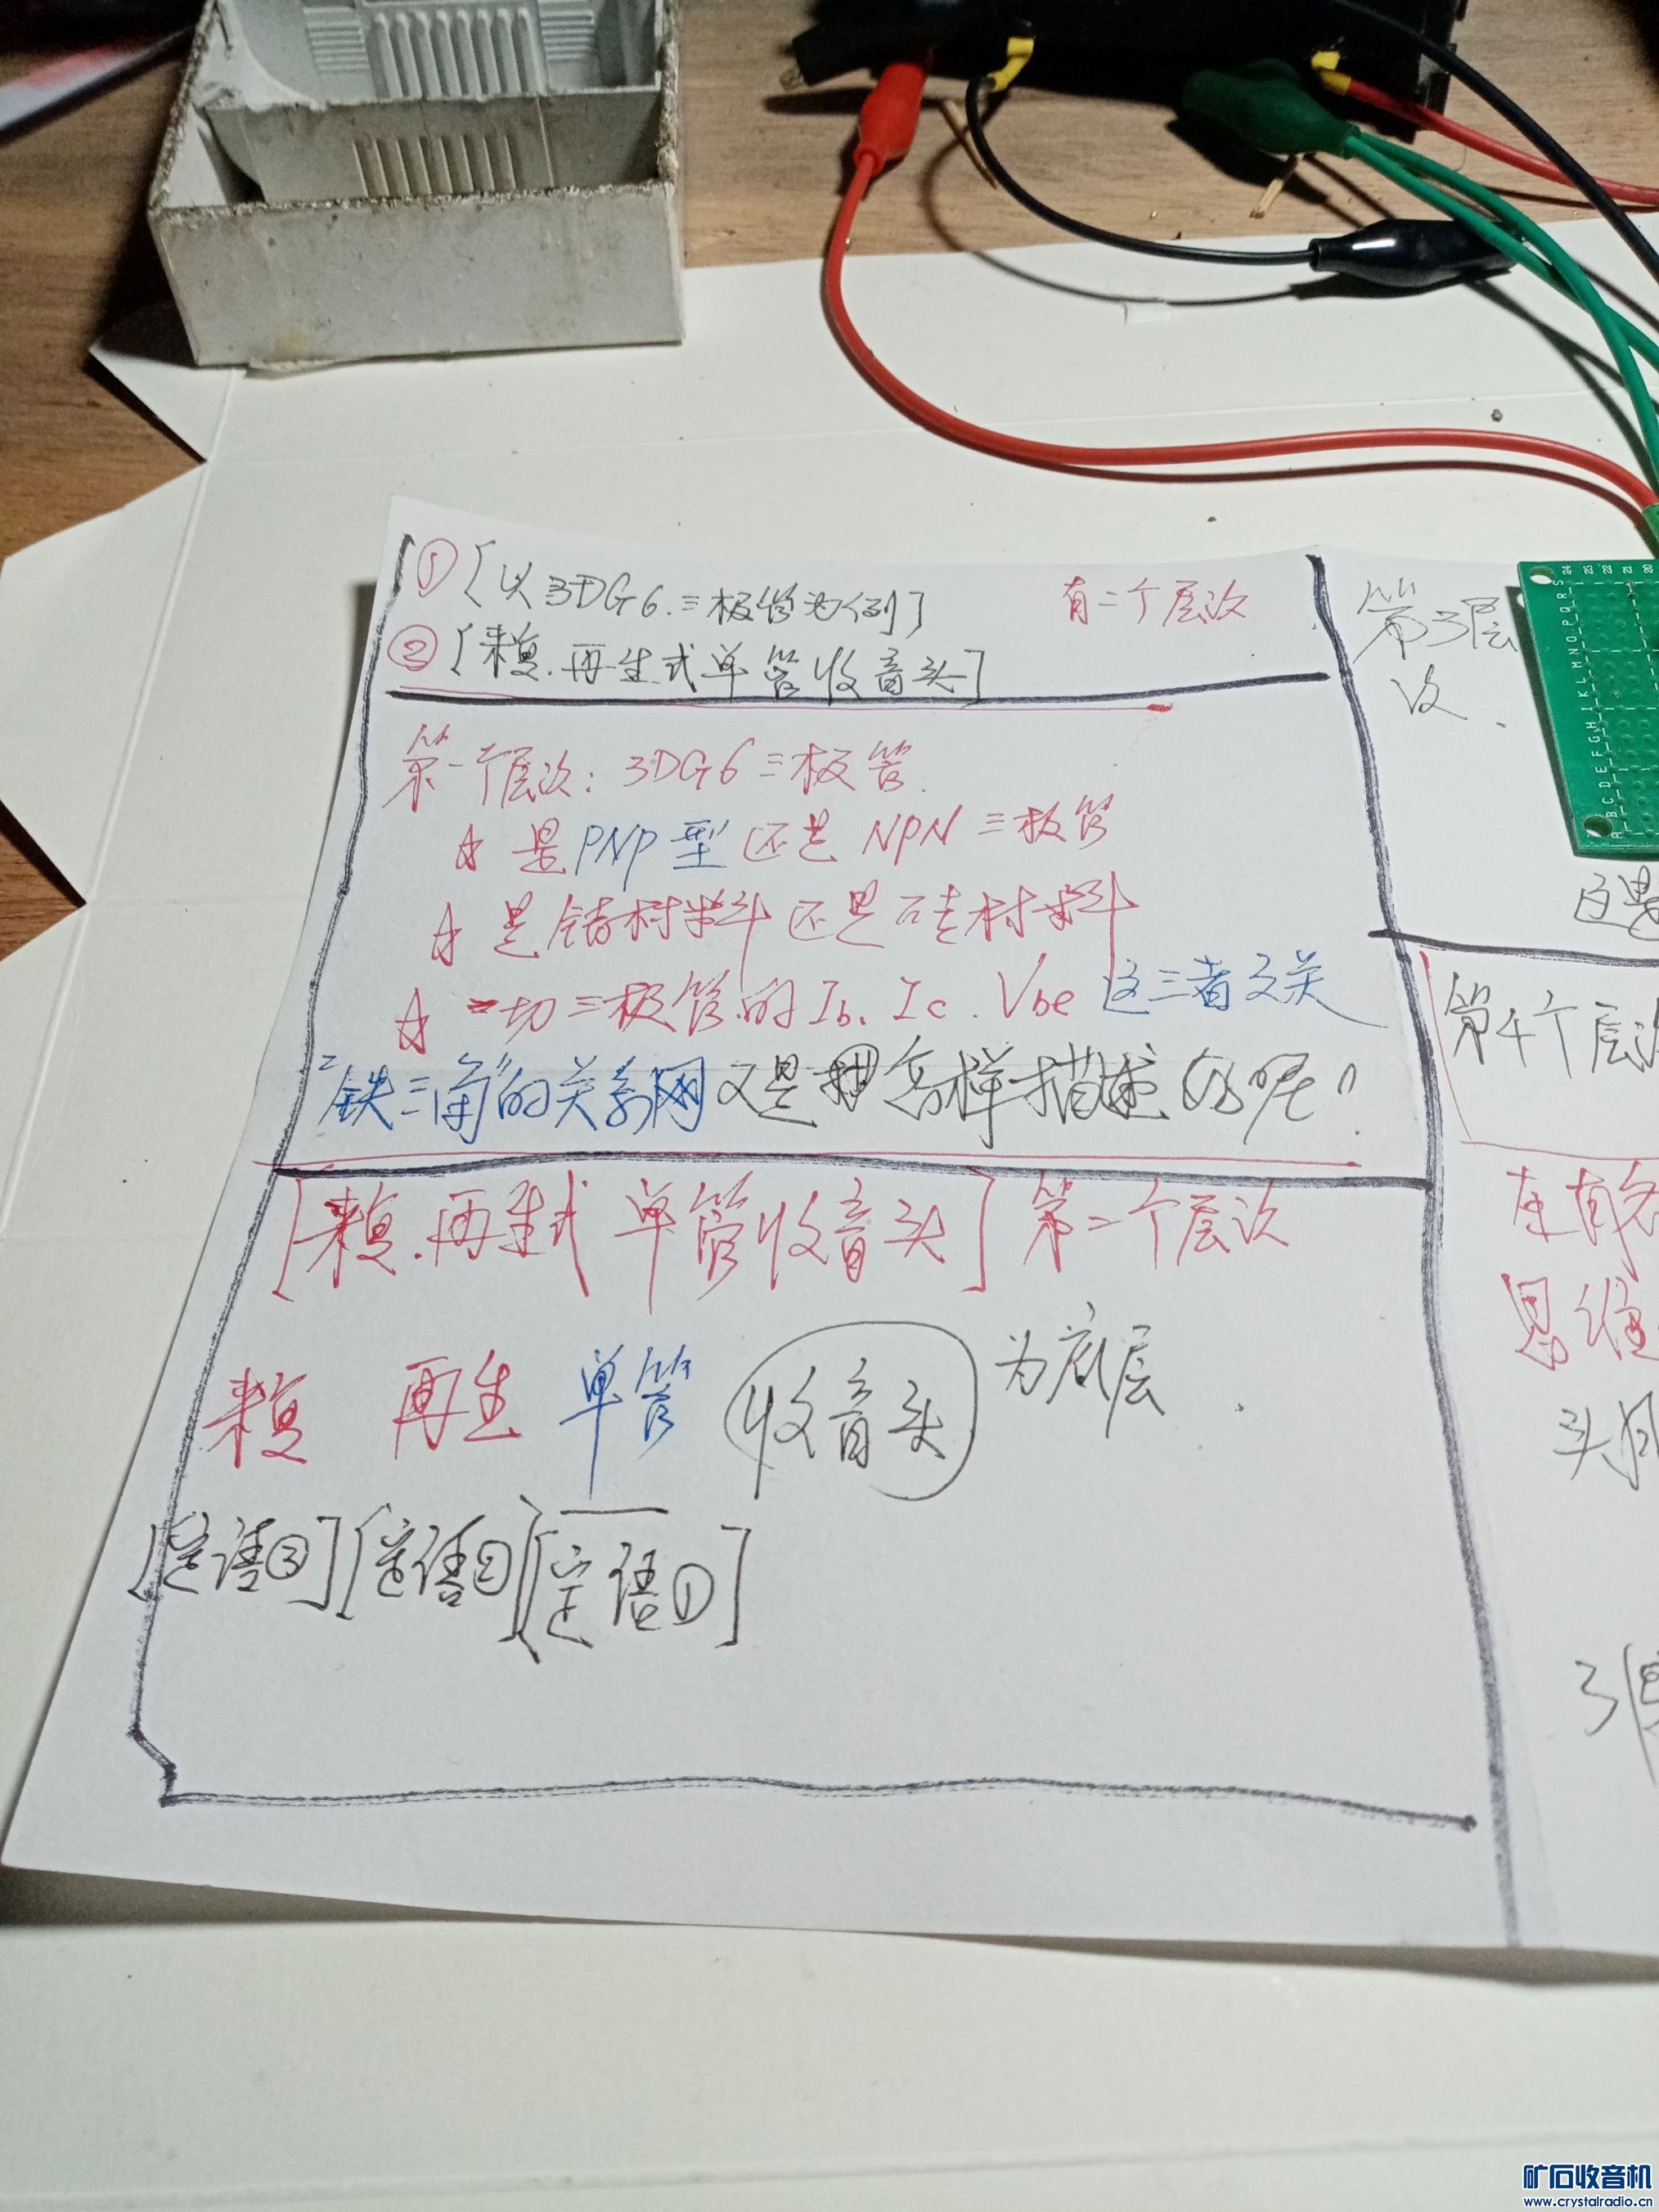 ① [以3DG6.三极管为例] 有二个层次
② [来复.再生式单管收音头]
第一个层次: 3DG6三极管.
☆ 是PNP型还是NPN三极管
☆ 是锗材料还是硅材料
☆ 一切三极管的Ib、Ic.Vbe这三者之关
"铁三角"的关系网又是怎样描述的呢"
[来复.再生式单管收音头] 第二个层次
来复 再生 单管 收音头 为底层.
[定语③][定语②][定语①]
第3层
次.
这是
第4个层次
在有
思维
头
3
24 23 22 21 20
A B C D E F G H I J K L M N O P Q R S
矿石收音机
www.crystalradio.cn